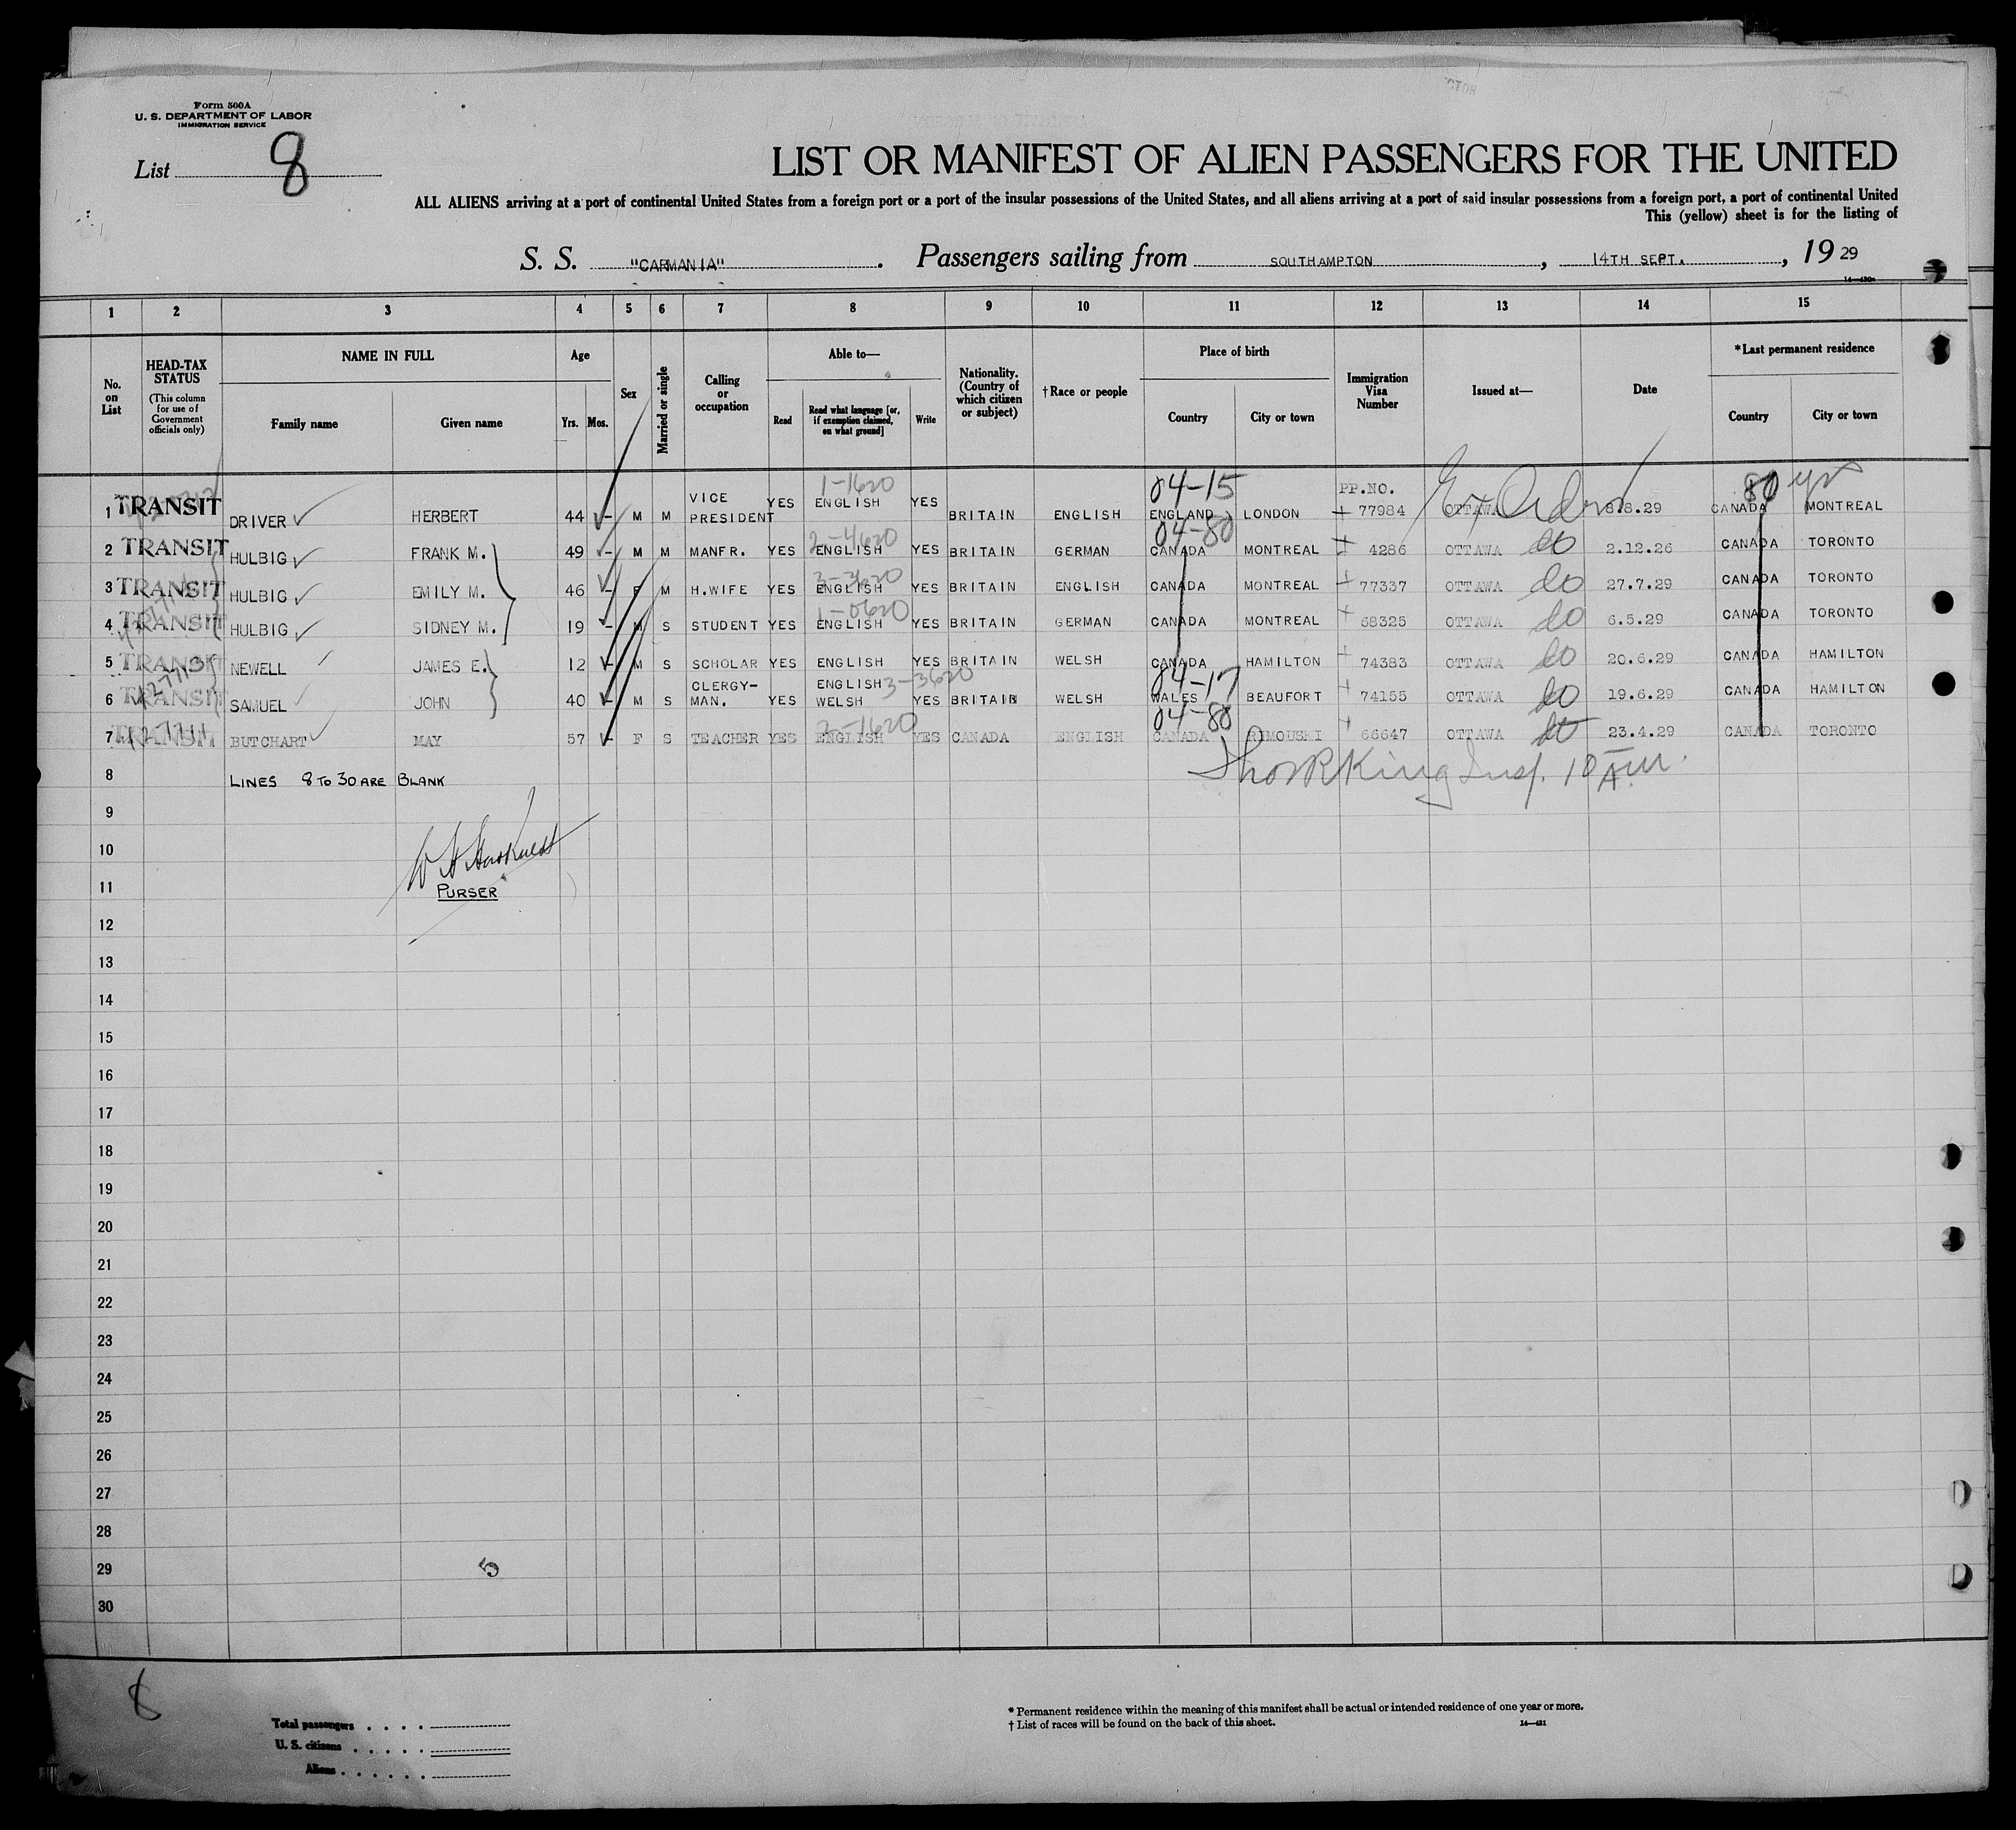 Form 500A
U. S. DEPARTMENT OF LABOR
IMMIGRATION SERVICE
List 8
LIST OR MANIFEST OF ALIEN PASSENGERS FOR THE UNITED
ALL ALIENS arriving at a port of continental United States from a foreign port or a port of the insular possessions of the United States, and all aliens arriving at a port of said insular possessions from a foreign port, a port of continental United
This (yellow) sheet is for the listing of
S. S. "CARMANIA". Passengers sailing from SOUTHAMPTON, 14TH SEPT., 1929
1 2 3 4 5 6 7 8 9 10 11 12 13 14 15
No. on List
HEAD-TAX STATUS (This column for use of Government officials only)
NAME IN FULL Family name Given name
Age Yrs. Mos.
Sex
Married or single
Calling or occupation
Able to— Read Read what language [or, if exemption claimed, on what ground] Write
Nationality. (Country of which citizen or subject)
†Race or people
Place of birth Country City or town
Immigration Visa Number
Issued at—
Date
*Last permanent residence Country City or town
1-1620 04-15 PP.NO. 80
1 TRANSIT DRIVER HERBERT 44 - M M VICE PRESIDENT YES ENGLISH YES BRITAIN ENGLISH ENGLAND LONDON 77984 OTTAWA 8.8.29 CANADA MONTREAL
2-4620 04-80
2 TRANSIT HULBIG FRANK M. 49 - M M MANFR. YES ENGLISH YES BRITAIN GERMAN CANADA MONTREAL 4286 OTTAWA do 2.12.26 CANADA TORONTO
3-3620
3 TRANSIT HULBIG EMILY M. 46 - F M H.WIFE YES ENGLISH YES BRITAIN ENGLISH CANADA MONTREAL 77337 OTTAWA do 27.7.29 CANADA TORONTO
1-0620
4 TRANSIT HULBIG SIDNEY M. 19 - M S STUDENT YES ENGLISH YES BRITAIN GERMAN CANADA MONTREAL 68325 OTTAWA do 6.5.29 CANADA TORONTO
5 TRANSIT NEWELL JAMES E. 12 - M S SCHOLAR YES ENGLISH YES BRITAIN WELSH CANADA HAMILTON 74383 OTTAWA do 20.6.29 CANADA HAMILTON
3-3620 04-17
6 TRANSIT SAMUEL JOHN 40 - M S CLERGY-MAN. YES ENGLISH WELSH YES BRITAIN WELSH WALES BEAUFORT 74155 OTTAWA do 19.6.29 CANADA HAMILTON
2-1620 04-80
7 TRANSIT BUTCHART MAY 57 - F S TEACHER YES ENGLISH YES CANADA ENGLISH CANADA RIMOUSKI 66647 OTTAWA do 23.4.29 CANADA TORONTO
8 LINES 8 TO 30 ARE BLANK
King Insp. 10 A.M.
9
10
11 PURSER
12
13
14
15
16
17
18
19
20
21
22
23
24
25
26
27
28
29 5
30
8
Total passengers
U. S. citizens
Aliens
* Permanent residence within the meaning of this manifest shall be actual or intended residence of one year or more.
† List of races will be found on the back of this sheet.
14—431